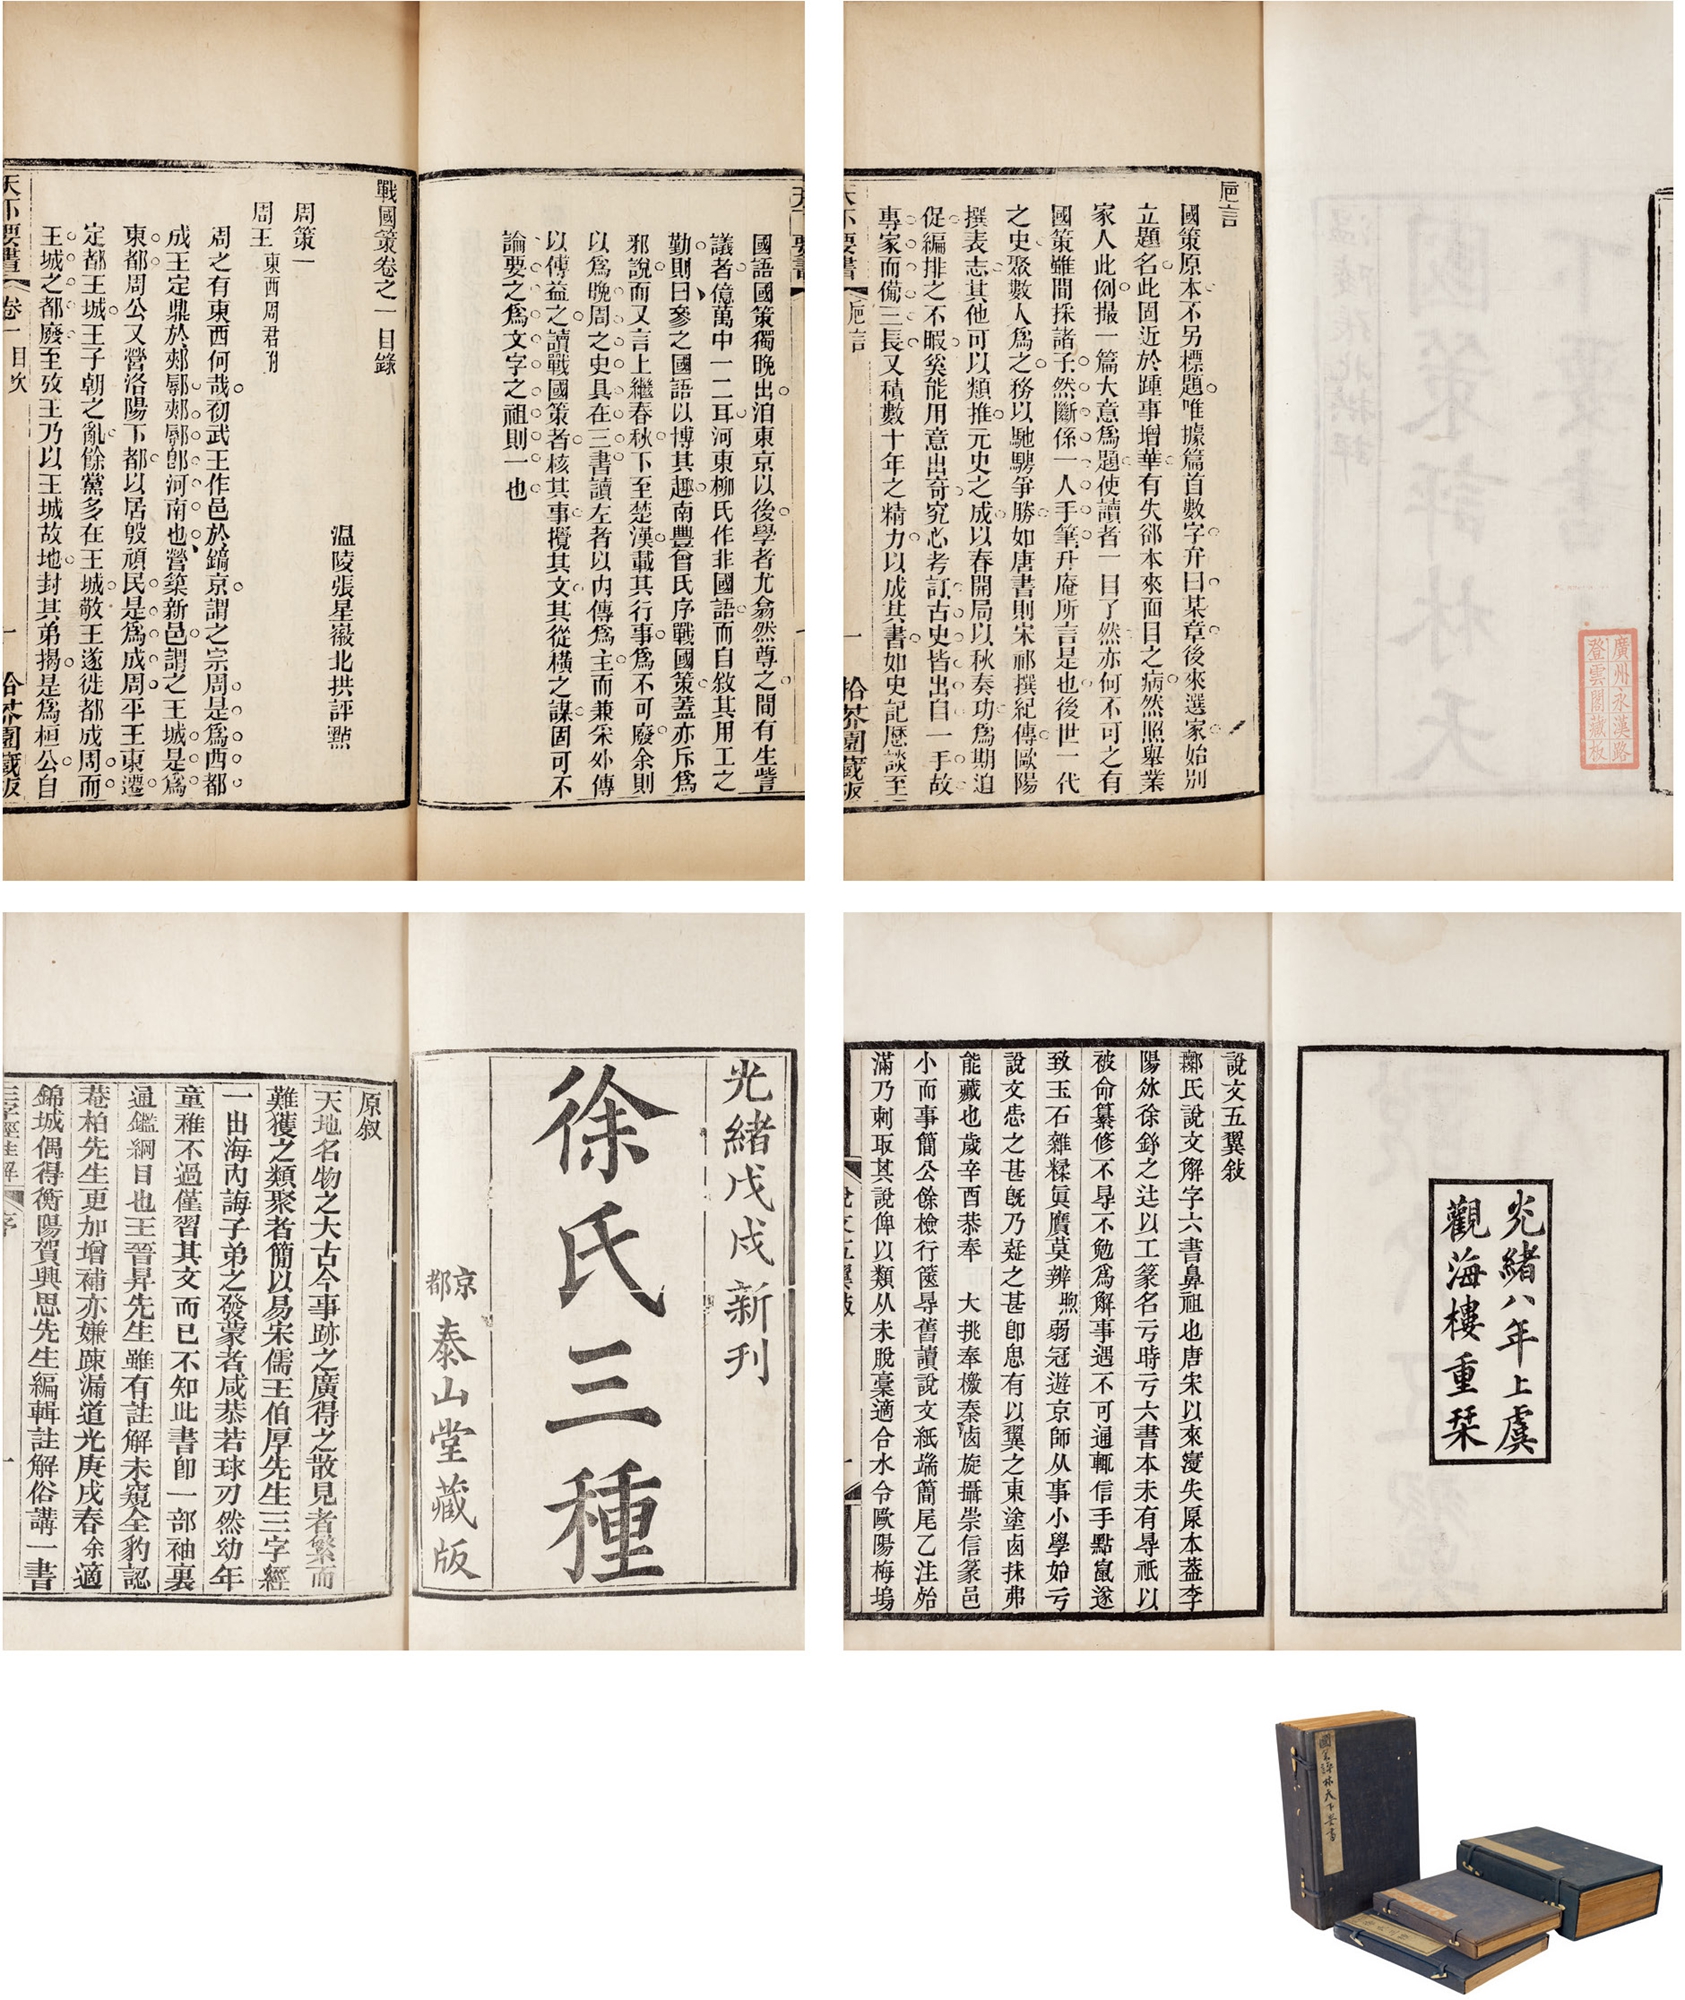 戰國策卷之一 目錄
温陵張星徽北拱評點
周策一
周王東西周君附
周之有東西何哉初武王作邑於鎬京謂之宗周是爲西都
成王定鼎於郟鄏郟鄏卽河南也營築新邑謂之王城是爲
東都周公又營洛陽下都以居殷頑民是爲成周平王東遷
定都王城王子朝之亂餘黨多在王城敬王遂徙都成周而
王城之都廢至攷王乃以王城故地封其弟揭是爲桓公自
天下要書 卷一 目次 一 拾芥園藏版
國語國策獨晚出洎東京以後學者尤翕然尊之間有生訾
議者億萬中一二耳河東柳氏作非國語而自敘其用工之
勤則曰參之國語以博其趣南豐曾氏序戰國策蓋亦斥爲
邪說而又言上繼春秋下至楚漢載其行事爲不可廢余則
以爲晚周之史具在三書讀左者以内傳爲主而兼采外傳
以傅益之讀戰國策者核其事攬其文其從橫之謀固可不
論要之爲文字之祖則一也
卮言
國策原本不另標題唯據篇首數字弁曰某章後來選家始別
立題名此固近於踵事增華有失郤本來面目之病然照舉業
家人此例撮一篇大意爲題使讀者一目了然亦何不可之有
國策雖間採諸子然斷係一人手筆升庵所言是也後世一代
之史聚數人爲之務以馳騁爭勝如唐書則宋祁撰紀傳歐陽
撰表志其他可以類推元史之成以春開局以秋奏功爲期迫
促編排之不暇奚能用意出奇究心考訂古史皆出自一手故
專家而備三長又積數十年之精力以成其書如史記歷談至
天下要書 卮言 一 拾芥園藏版
廣州永漢路
登雲閣藏板
原叙
天地名物之大古今事跡之廣得之散見者繁而
難獲之類聚者簡以易宋儒王伯厚先生三字經
一出海內誨子弟之發蒙者咸恭若球刃然幼年
童稚不過僅習其文而已不知此書卽一部袖裏
通鑑綱目也王晉昇先生雖有註解未窺全豹認
菴柏先生更加增補亦嫌踈漏道光庚戌春余適
錦城偶得衡陽賀興思先生編輯註解俗講一書
三字經註解 序 一
光緒戊戌新刊
徐氏三種
京都泰山堂藏版
說文五翼敍
鄦氏說文解字六書鼻祖也唐宋以來寖失原本蓋李
陽冰徐鉉之迬以工篆名亏時亏六書本未有尋祇以
被命纂修不尋不勉爲解事遇不可通輒信手點竄遂
致玉石雜糅眞贋莫辨煦弱冠遊京師从事小學始亏
說文悉之甚旣乃疑之甚卽思有以翼之東塗鹵抹弗
能藏也歲辛酉恭奉 大挑奉檄秦鹵旋攝崇信篆邑
小而事簡公餘檢行篋尋舊讀說文紙耑簡尾乙注殆
滿乃刺取其說俾以類从未脫稾適合水令歐陽梅塢
光緒八年上虞
觀海樓重栞
國策評林天下要書